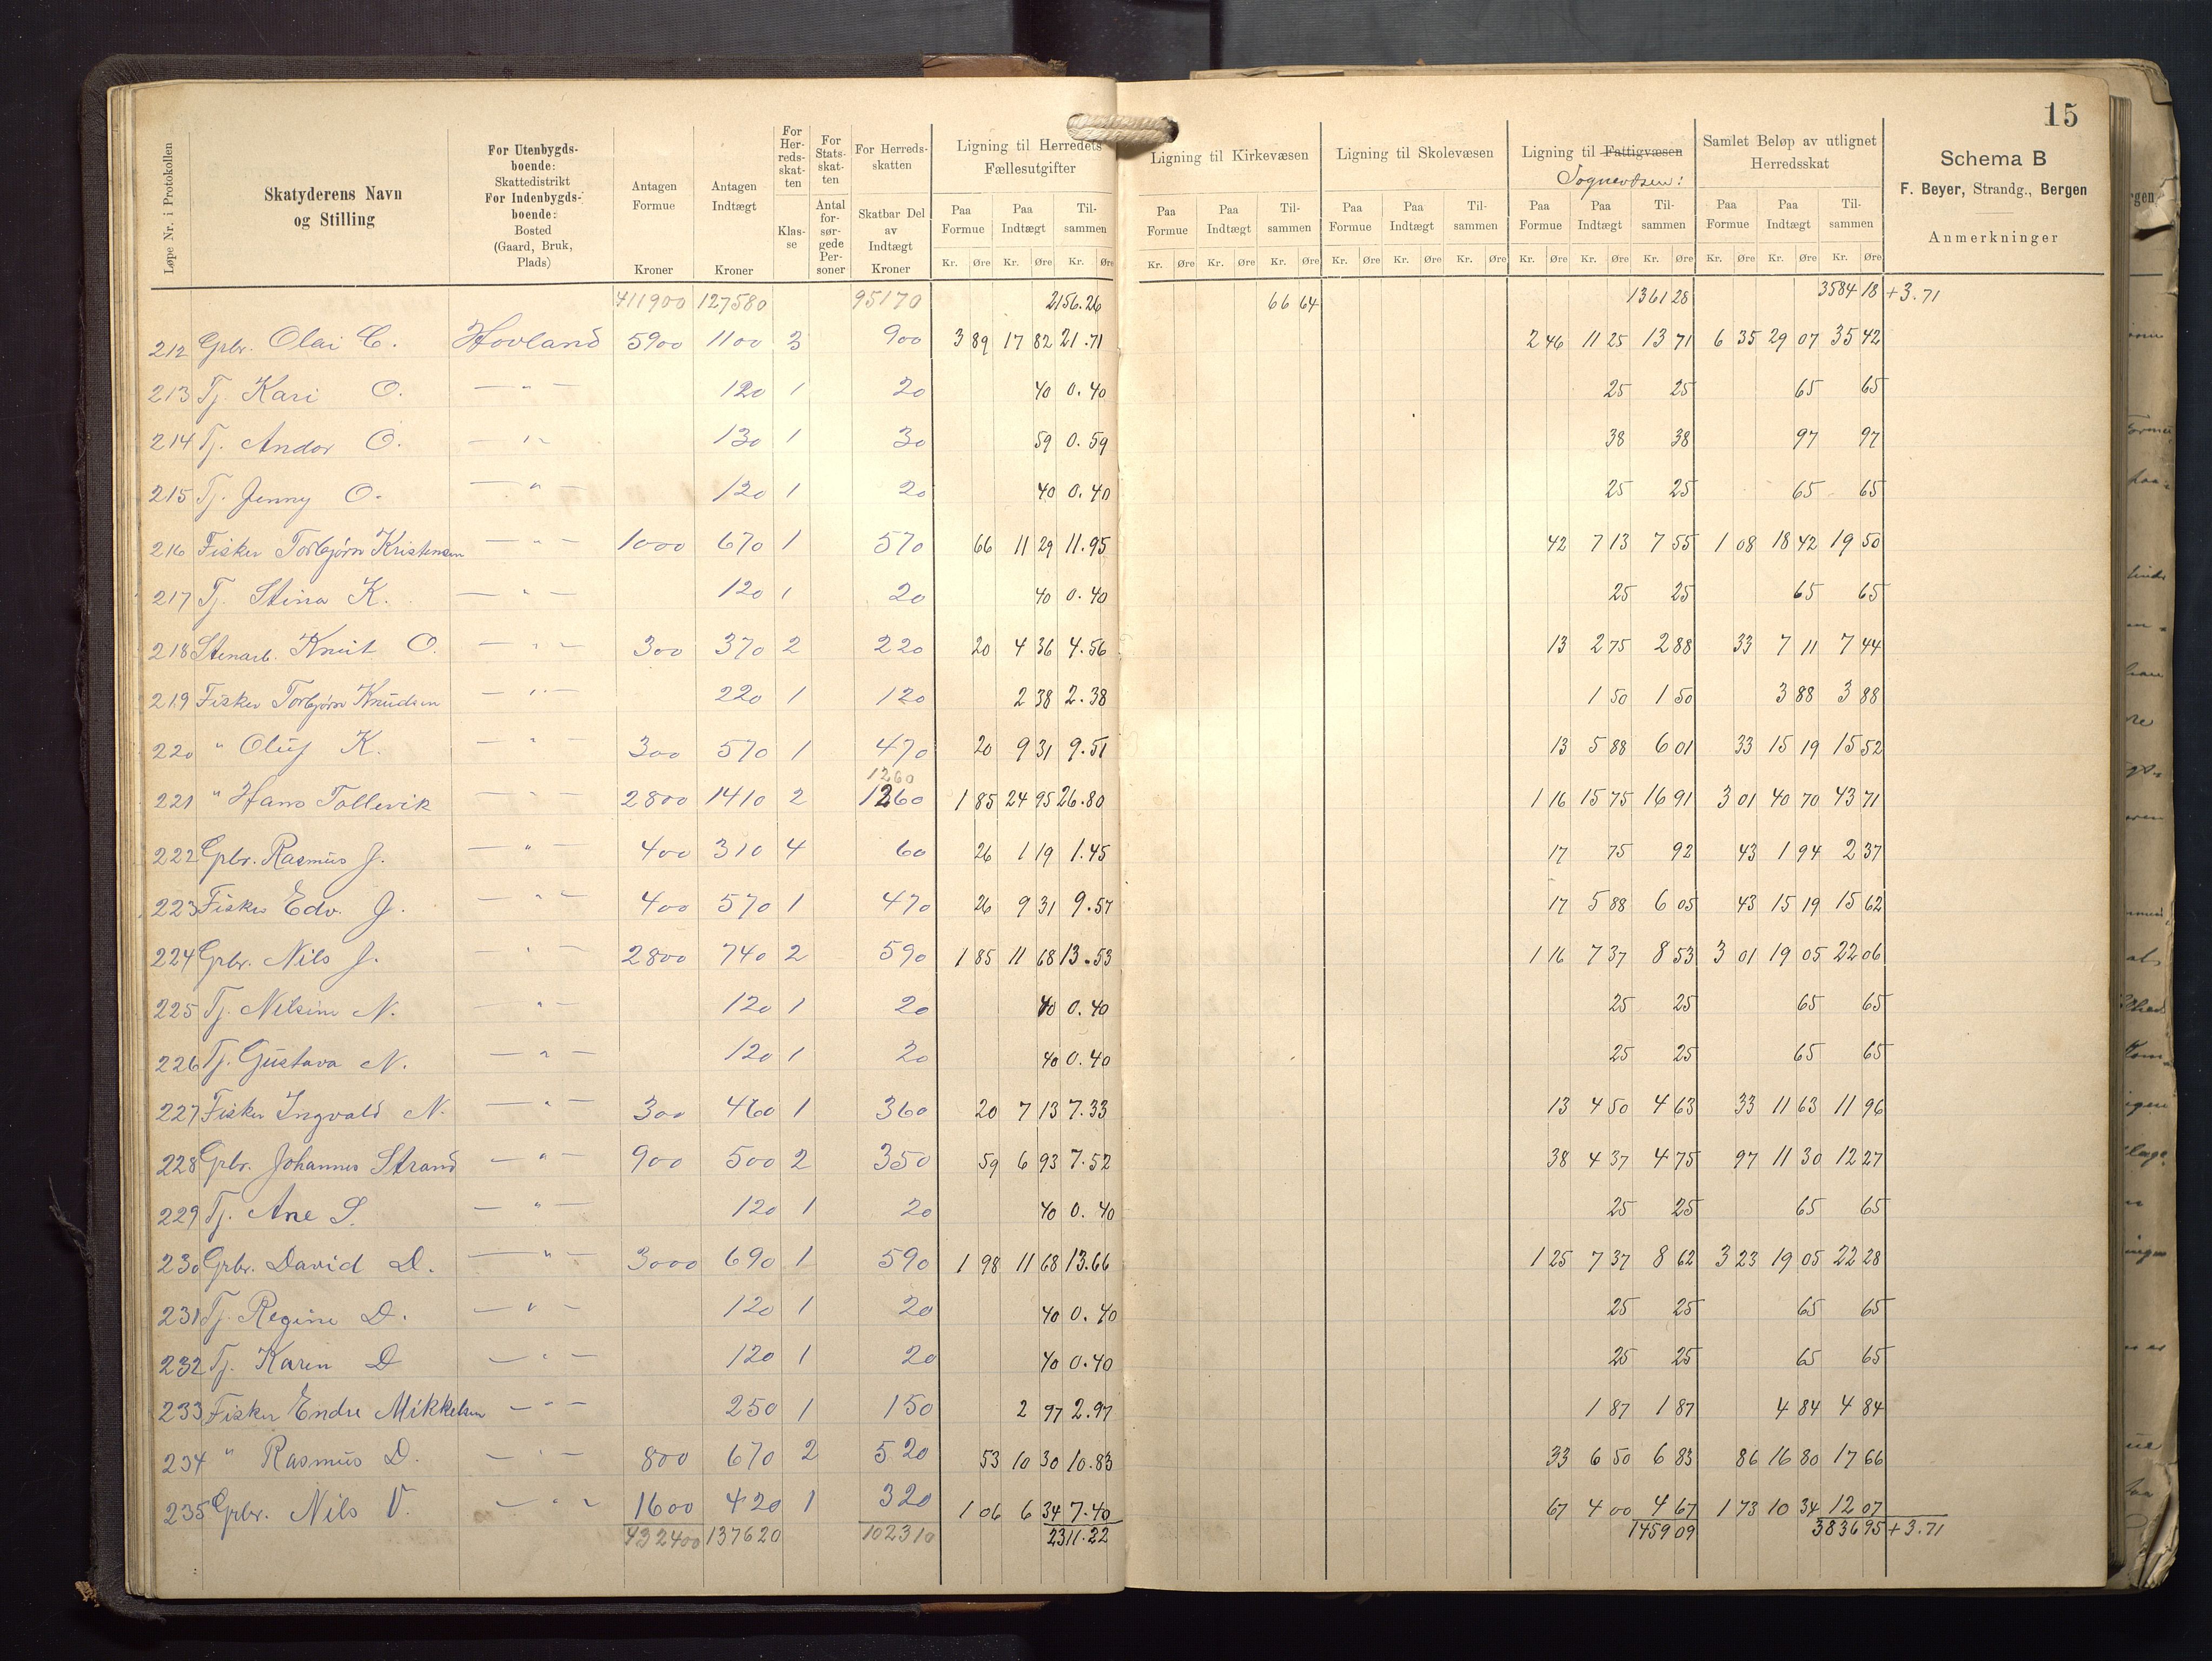 15
Løpe Nr. i Protokollen
Skatyderens Navn og Stilling
For Utenbygds-boende: Skattedistrikt For Indenbygds-boende: Bosted (Gaard, Bruk, Plads)
Antagen Formue Kroner
Antagen Indtægt Kroner
For Her-reds-skat-ten Klas-se
For Stats-skat-ten Antal for-sør-gede Per-soner
For Herreds-skatten Skatbar Del av Indtægt Kroner
Ligning til Herredets Fællesutgifter
Paa Formue Paa Indtægt Til-sammen
Kr. Øre Kr. Øre Kr. Øre
Ligning til Kirkevæsen
Paa Formue Paa Indtægt Til-sammen
Kr. Øre Kr. Øre Kr. Øre
Ligning til Skolevæsen
Paa Formue Paa Indtægt Til-sammen
Kr. Øre Kr. Øre Kr. Øre
Ligning til Fattigvæsen
Paa Formue Paa Indtægt Til-sammen
Kr. Øre Kr. Øre Kr. Øre
Samlet Beløp av utlignet Herredsskat
Paa Formue Paa Indtægt Til-sammen
Kr. Øre Kr. Øre Kr. Øre
Schema B
F. Beyer, Strandg., Bergen
Anmerkninger
411900 127580 95170 2156.26 66 64 1361 28 3584 18 +3.71
212 Gbr. Olai C. Hovland 5900 1100 3 900 3 89 17 82 21.71 2 46 11 25 13 71 6 35 29 07 35 42
213 Tj. Kari O. — " — 120 1 20 40 0.40 25 25 65 65
214 Tj. Andor O. — " — 130 1 30 59 0.59 38 38 97 97
215 Tj. Jenny O. — " — 120 1 20 40 0.40 25 25 65 65
216 Fisker Torbjørn Kristensen — " — 1000 670 1 570 66 11 29 11.95 42 7 13 7 55 1 08 18 42 19 50
217 Tj. Stina K. — " — 120 1 20 40 0.40 25 25 65 65
218 Stenarb. Knut O. — " — 300 370 2 220 20 4 36 4.56 13 2 75 2 88 33 7 11 7 44
219 Fisker Torbjørn Knudsen — " — 220 1 120 2 38 2.38 1 50 1 50 3 88 3 88
220 " Oluf K. — " — 300 570 1 470 20 9 31 9.51 13 5 88 6 01 33 15 19 15 52
1260
221 " Hans Tollevik — " — 2800 1410 2 1260 1 85 24 95 26.80 1 16 15 75 16 91 3 01 40 70 43 71
222 Gbr. Rasmus J. — " — 400 310 4 60 26 1 19 1.45 17 75 92 43 1 94 2 37
223 Fisker Edv. J. — " — 400 570 1 470 26 9 31 9.57 17 5 88 6 05 43 15 19 15 62
224 Gbr. Nils J. — " — 2800 740 2 590 1 85 11 68 13.53 1 16 7 37 8 53 3 01 19 05 22 06
225 Tj. Nilsine N. — " — 120 1 20 40 0.40 25 25 65 65
226 Tj. Gustava N. — " — 120 1 20 40 0.40 25 25 65 65
227 Fisker Ingvald N. — " — 300 460 1 360 20 7 13 7.33 13 4 50 4 63 33 11 63 11 96
228 Gbr. Johannes Strand — " — 900 500 2 350 59 6 93 7.52 38 4 37 4 75 97 11 30 12 27
229 Tj. Ane S. — " — 120 1 20 40 0.40 25 25 65 65
230 Gbr. David D. — " — 3000 690 1 590 1 98 11 68 13.66 1 25 7 37 8 62 3 23 19 05 22 28
231 Tj. Regine D. — " — 120 1 20 40 0.40 25 25 65 65
232 Tj. Karin D — " — 120 1 20 40 0.40 25 25 65 65
233 Fisker Endre Mikkelsen — " — 250 1 150 2 97 2.97 1 87 1 87 4 84 4 84
234 " Rasmus D. — " — 800 670 2 520 53 10 30 10.83 33 6 50 6 83 86 16 80 17 66
235 Gbr. Nils V. — " — 1600 420 1 320 1 06 6 34 7.40 67 4 00 4 67 1 73 10 34 12 07
432400 137620 102310 2311.22 1459 09 3836 95 +3.71